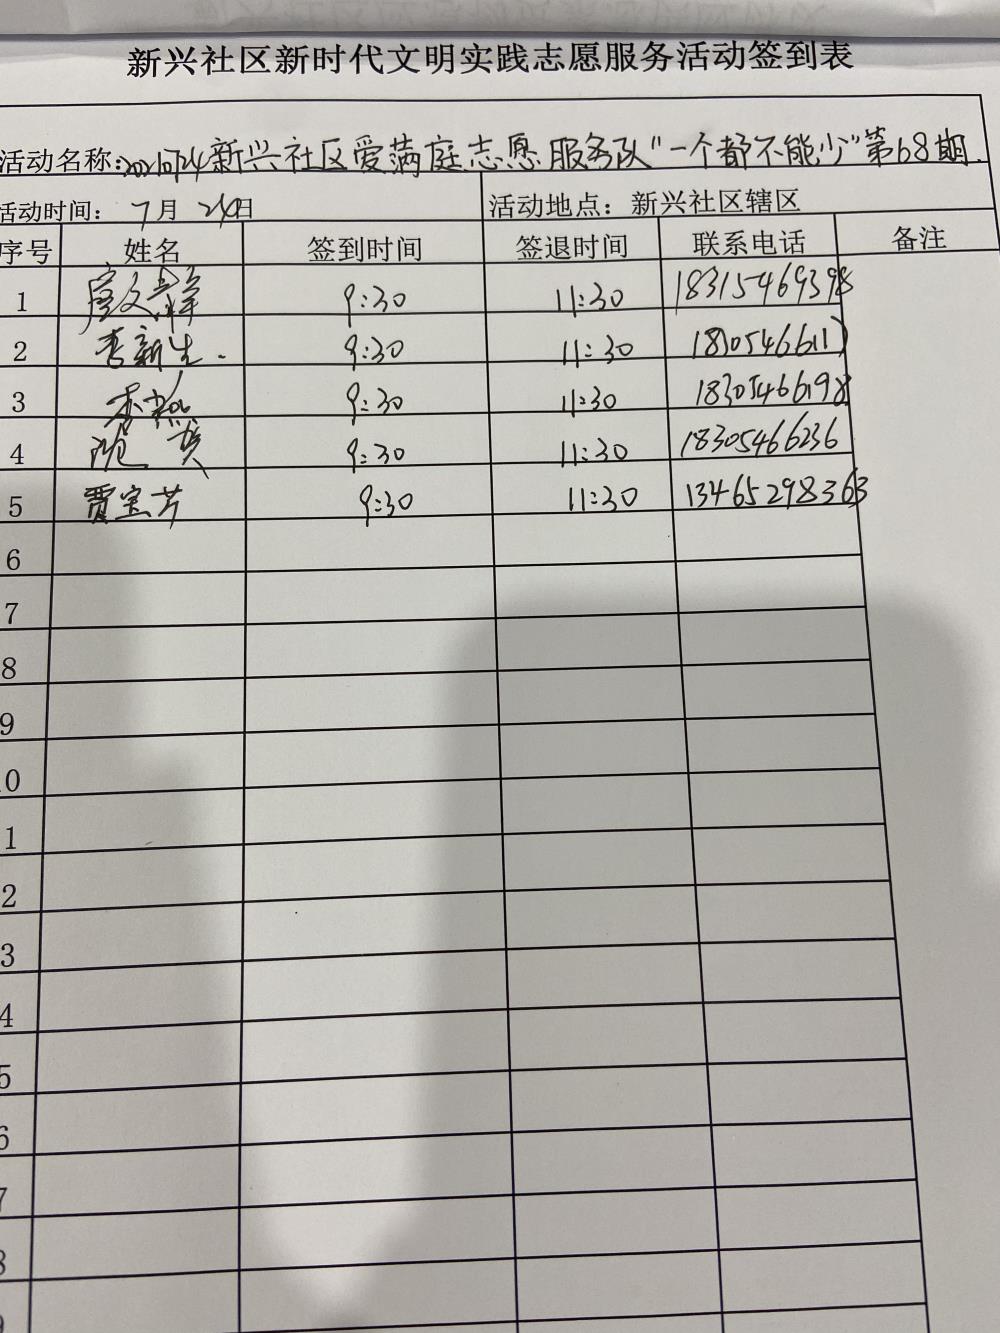 新兴社区新时代文明实践志愿服务活动签到表
活动名称:20210724新兴社区爱满庭志愿服务队"一个都不能少"第68期.
活动时间: 7月 24日 活动地点: 新兴社区辖区
序号 姓名 签到时间 签退时间 联系电话 备注
1 9:30 11:30 18315469398
2 李新生. 9:30 11:30
3 9:30 11:30 18305466198
4 9:30 11:30 18305466236
5 贾宝芳 9:30 11:30 13465298363
6
7
8
9
0
1
2
3
4
5
6
7
8
9